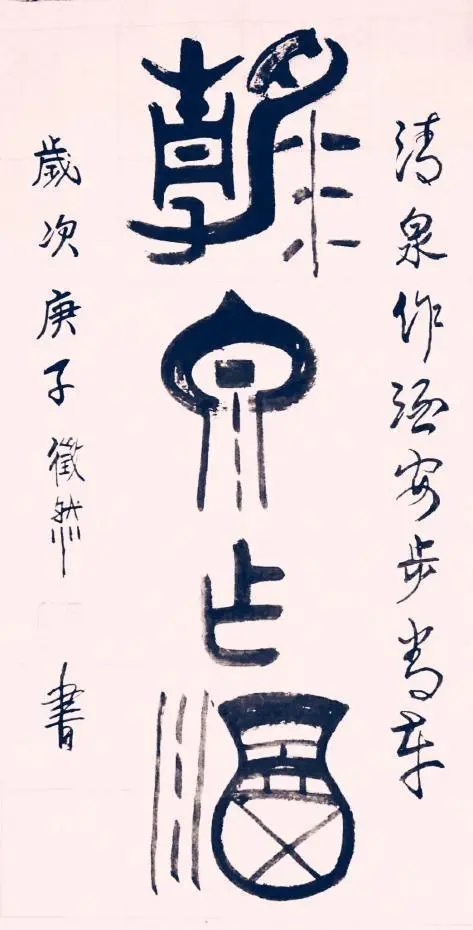 清泉作酒安步當車
泉乍酒
歲次庚子徵然書